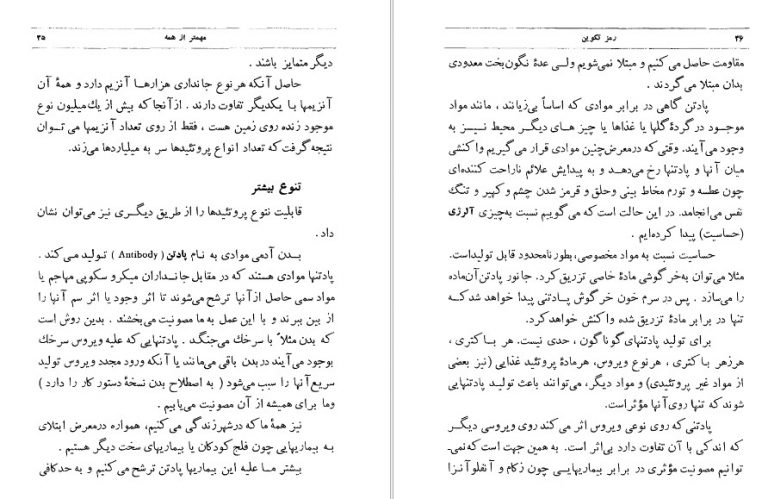 مهمتر از همه ۳۵
دیگر متمایز باشند .
حاصل آنکه هر نوع جانداری هزارها آنزیم دارد و همهٔ آن
آنزیمها با یکدیگر تفاوت دارند . از آنجا که بیش از یك میلیون نوع
موجود زنده روی زمین هست ، فقط از روی تعداد آنزیمها می توان
نتیجه گرفت که تعداد انواع پروتئیدها سر به میلیاردها می‌زند.
تنوع بیشتر
قابلیت تنوع پروتئیدها را از طریق دیگری نیز می‌توان نشان
داد .
بدن آدمی موادی به نام پادتن (Antibody) تولید می‌کند .
پادتنها موادی هستند که در مقابل جانداران میکروسکوپی مهاجم یا
مواد سمی حاصل از آنها ترشح می‌شوند تا اثر وجود یا اثر سم آنها را
از بین ببرند و با این عمل به ما مصونیت می‌بخشند . بدین روش است
که بدن مثلاً با سرخك می‌جنگد . پادتنهایی که علیه ویروس سرخك
بوجود می‌آیند در بدن باقی می‌مانند یا آنکه ورود مجدد ویروس تولید
سریع آنها را سبب می‌شود ( به اصطلاح بدن نسخهٔ دستور کار را دارد )
وما برای همیشه از آن مصونیت می‌یابیم .
نیز همهٔ ما که در شهر زندگی می‌کنیم، همواره در معرض ابتلای
به بیماریهایی چون فلج کودکان یا بیماریهای سخت دیگر هستیم .
بیشتر ما علیه این بیماریها پادتن ترشح می‌کنیم و به حد کافی
۳۶ رمز تکوین
مقاومت حاصل می کنیم و مبتلا نمی‌شویم ولی عدهٔ نگون‌بخت معدودی
بدان مبتلا می‌گردند .
پادتن گاهی در برابر موادی که اساساً بی‌زیانند ، مانند مواد
موجود در گردهٔ گلها یا غذاها یا چیز های دیگر محیط نیز به
وجود می‌آیند. وقتی که در معرض چنین موادی قرار می‌گیریم واکنشی
میان آنها و پادتنها رخ می‌دهد و به پیدایش علائم ناراحت کننده‌ای
چون عطسه و تورم مخاط بینی و حلق و قرمز شدن چشم و کهیر و تنگ
نفس می‌انجامد. در این حالت است که می‌گوییم نسبت به‌چیزی آلرژی
(حساسیت) پیدا کرده‌ایم .
حساسیت نسبت به مواد مخصوصی، بطور نامحدود قابل تولید است.
مثلا می‌توان به خرگوشی مادهٔ خاصی تزریق کرد. جانور پادتن آن‌ماده
را می‌سازد . پس در سرم خون خرگوش پادتنی پیدا خواهد شد که
تنها در برابر مادهٔ تزریق شده واکنش خواهد کرد.
برای تولید پادتنهای گوناگون ، حدی نیست. هر باکتری ،
هر زهر باکتری ، هر نوع ویروس، هر مادهٔ پروتئید غذایی (نیز بعضی
از مواد غیر پروتئیدی) و مواد دیگر، می‌توانند باعث تولید پادتنهایی
شوند که تنها روی آنها مؤثر است.
پادتنی که روی نوعی ویروس اثر می‌کند روی ویروسی دیگر
که اندکی با آن تفاوت دارد بی‌اثر است. به همین جهت است که نمی-
توانیم مصونیت مؤثری در برابر بیماریهایی چون زکام و آنفلوآنزا